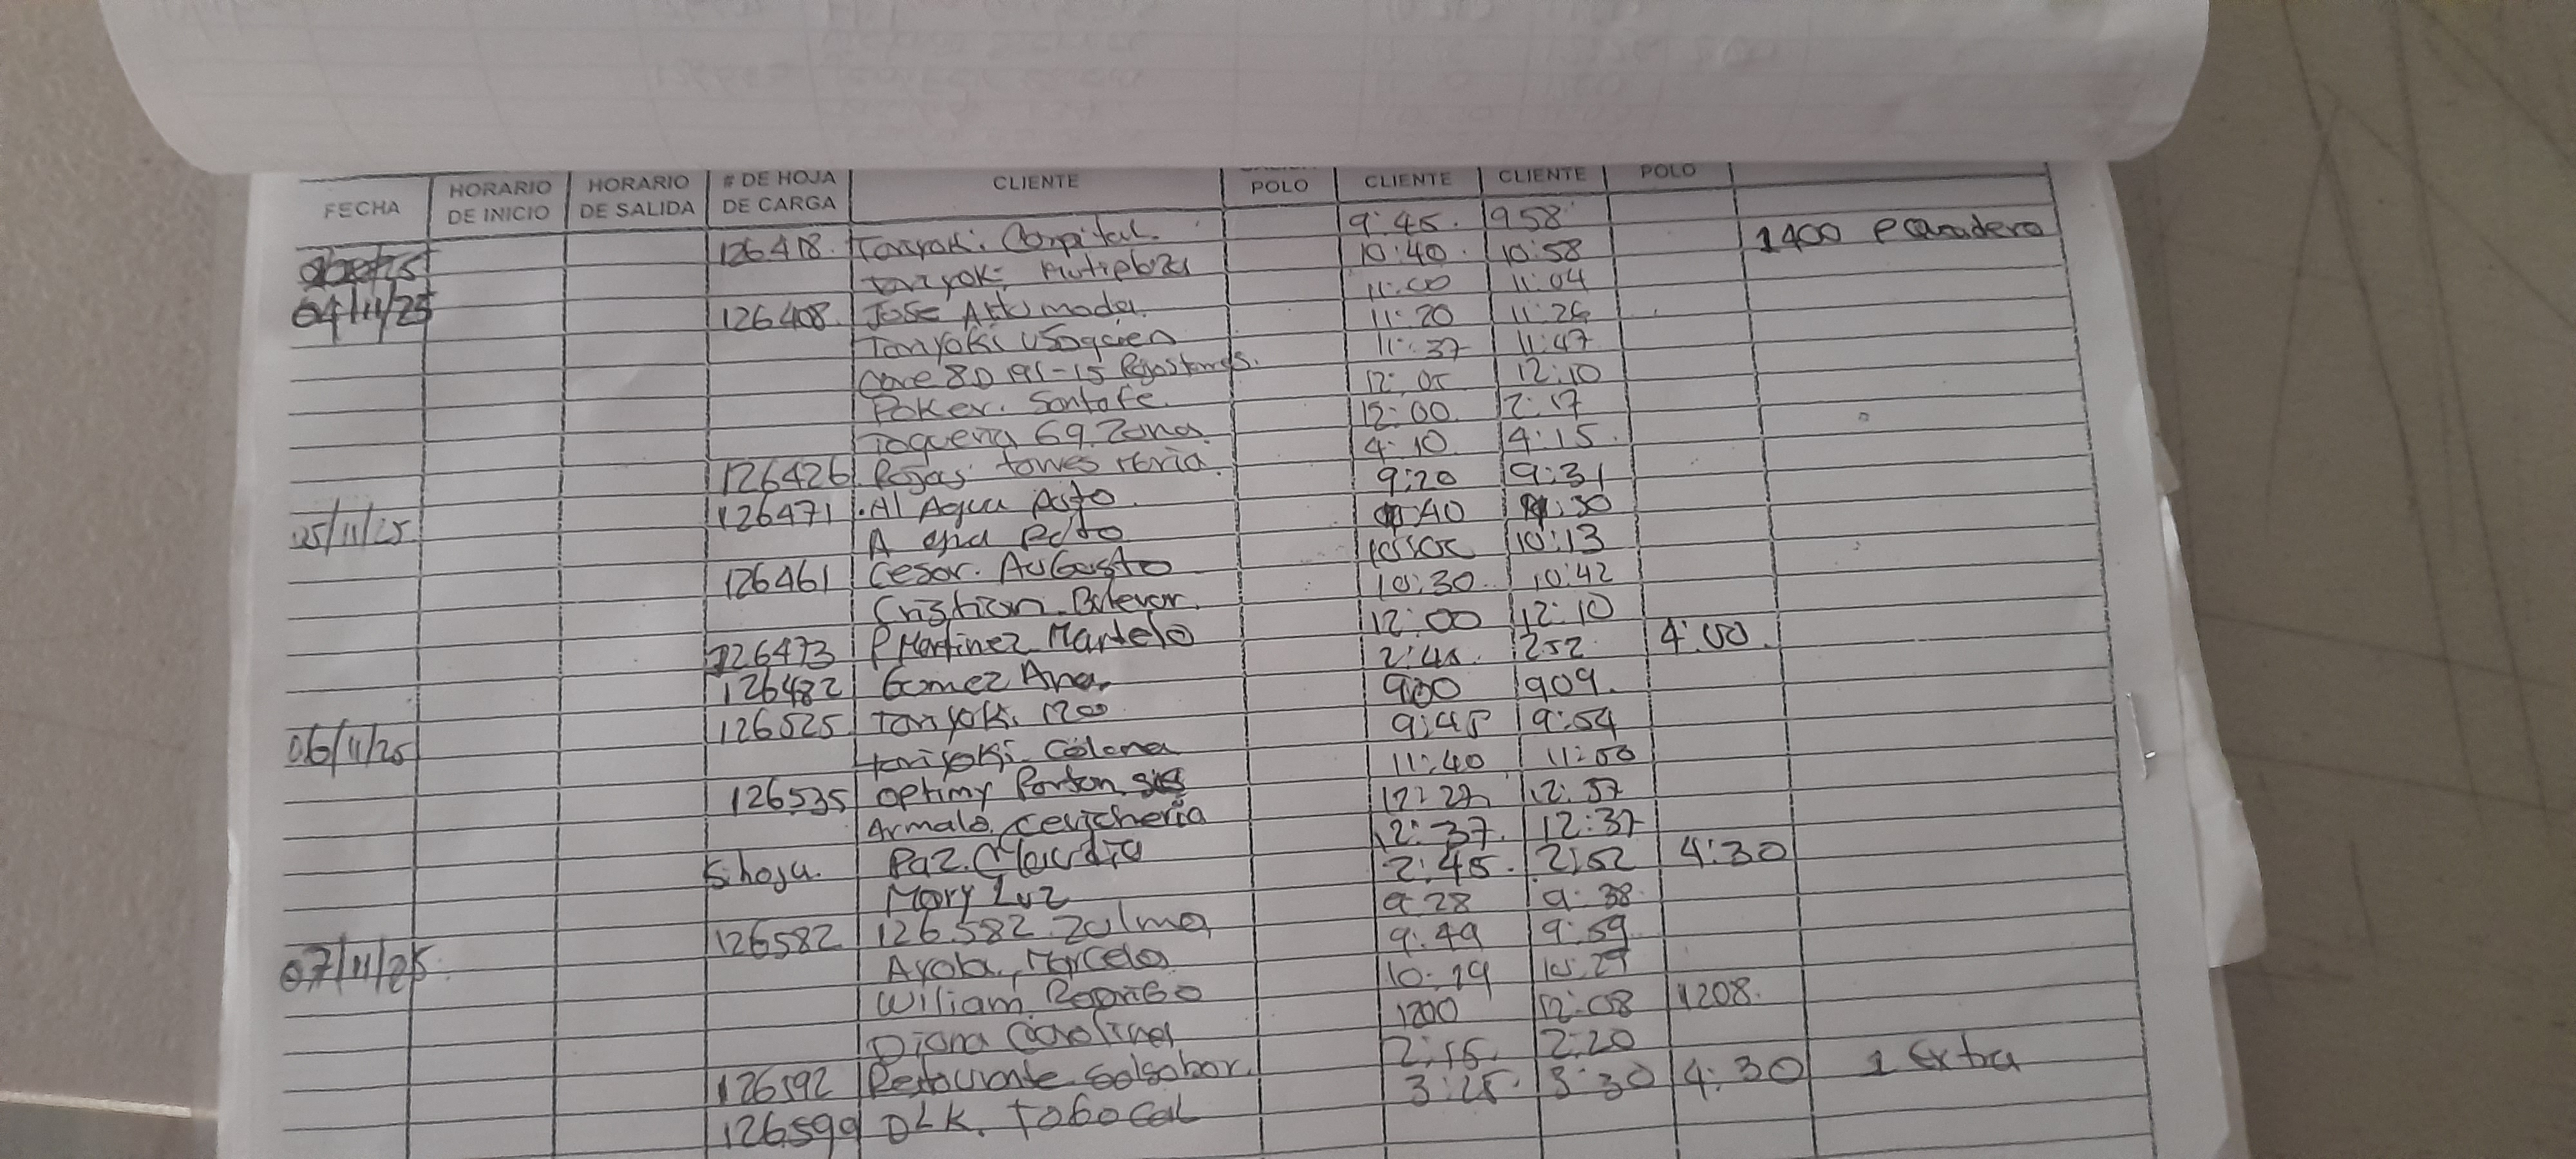 FECHA HORARIO DE INICIO HORARIO DE SALIDA # DE HOJA DE CARGA CLIENTE POLO CLIENTE CLIENTE POLO
126418. Tanyoki. Corpital. 9:45. 958
Tanyoki 10:40. 10:58 1400 Pcanadero
04/11/25 11:00 11:04
126408. Jose 11:20 11:26
Tanyoki Usaquen 11:37 11:47
80 191-15 12:05 12:10
Poker. Santafe. 12:00 2:17
Toqueria 69. Zona. 4:10 4:15.
126426 Rojas torres 9:20 9:31
126471 .Al Agua Pato :40 :30
05/11/25 A Pato 10:13
126461 Cesar. Augusto 10:30. 10:42
Cristian. 12:00 12:10
126473 P Martinez Martelo 2:45. 252 4:00.
126482 Gomez Ana. 900 909.
126525 Tanyoki. 170 9:45 9:54
06/11/25 taniyoki. Colona 11:40 11:50
126535 optimy 12:27 12:37
Armalo. cevicheria 12:37. 12:37
S. hoja. Paz. Claudia 2:45. 2:52 4:30
Mary Luz 9:28 9:38
126582 126.582 Zulma 9:49 9:59
07/11/25. Ayala, Marcela 10:19 10:29
William 1200 12:08 1208.
Diana Carolina 2:15. 2:20
126592 Restaurante Salsabor. 3:25. 3:30 4:30 1 Extra
126599 DLK.